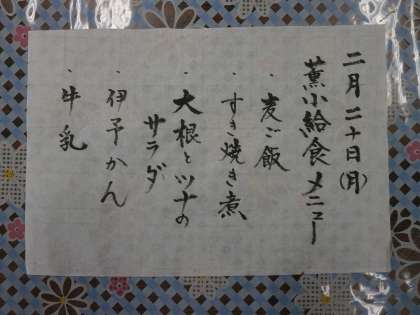 二月二十日(月)
薫小給食メニュー
・麦ご飯
・すき焼き煮
・大根とツナの
サラダ
・伊予かん
・牛乳